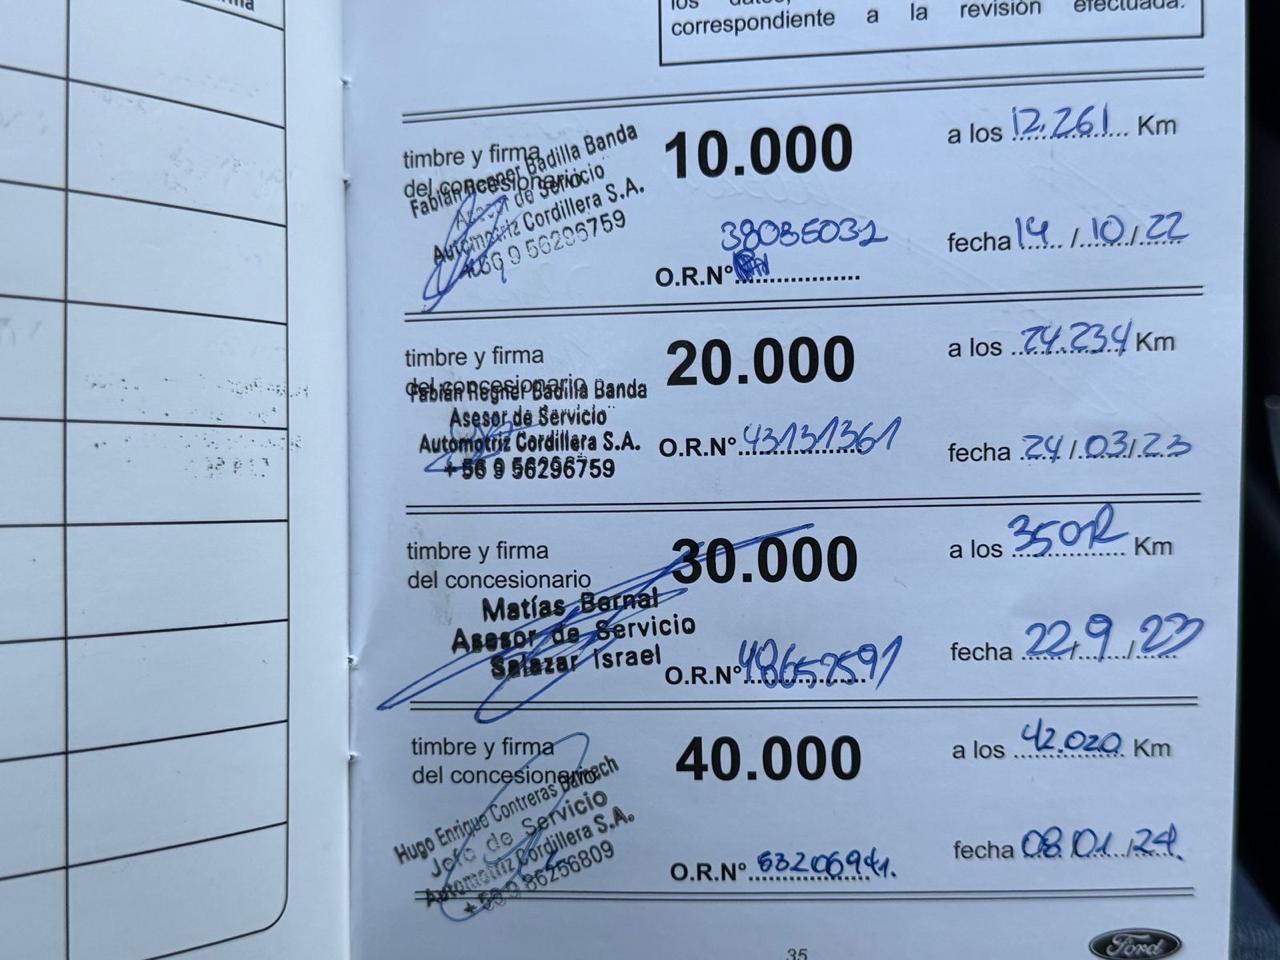 los datos,
correspondiente a la revisión efectuada.
timbre y firma
del concesionario
Fabián Regner Badilla Banda
Asesor de Servicio
Automotriz Cordillera S.A.
+56 9 56296759
10.000
a los 12.261 Km
38085032
O.R.Nº
fecha 14/10/22
timbre y firma
del concesionario
Fabián Regner Badilla Banda
Asesor de Servicio
Automotriz Cordillera S.A.
+56 9 56296759
20.000
a los 24.234 Km
O.R.Nº 43131361
fecha 24/03/23
timbre y firma
del concesionario
Matías Bernal
Asesor de Servicio
Salazar Israel
30.000
a los Km
O.R.Nº 48652591
fecha 22/9/23
timbre y firma
del concesionario
Hugo Enrique Contreras
Jefe de Servicio
Automotriz Cordillera S.A.
+56 9 86256809
40.000
a los 42.020 Km
O.R.Nº 53206941.
fecha 08/01/24.
35
Ford